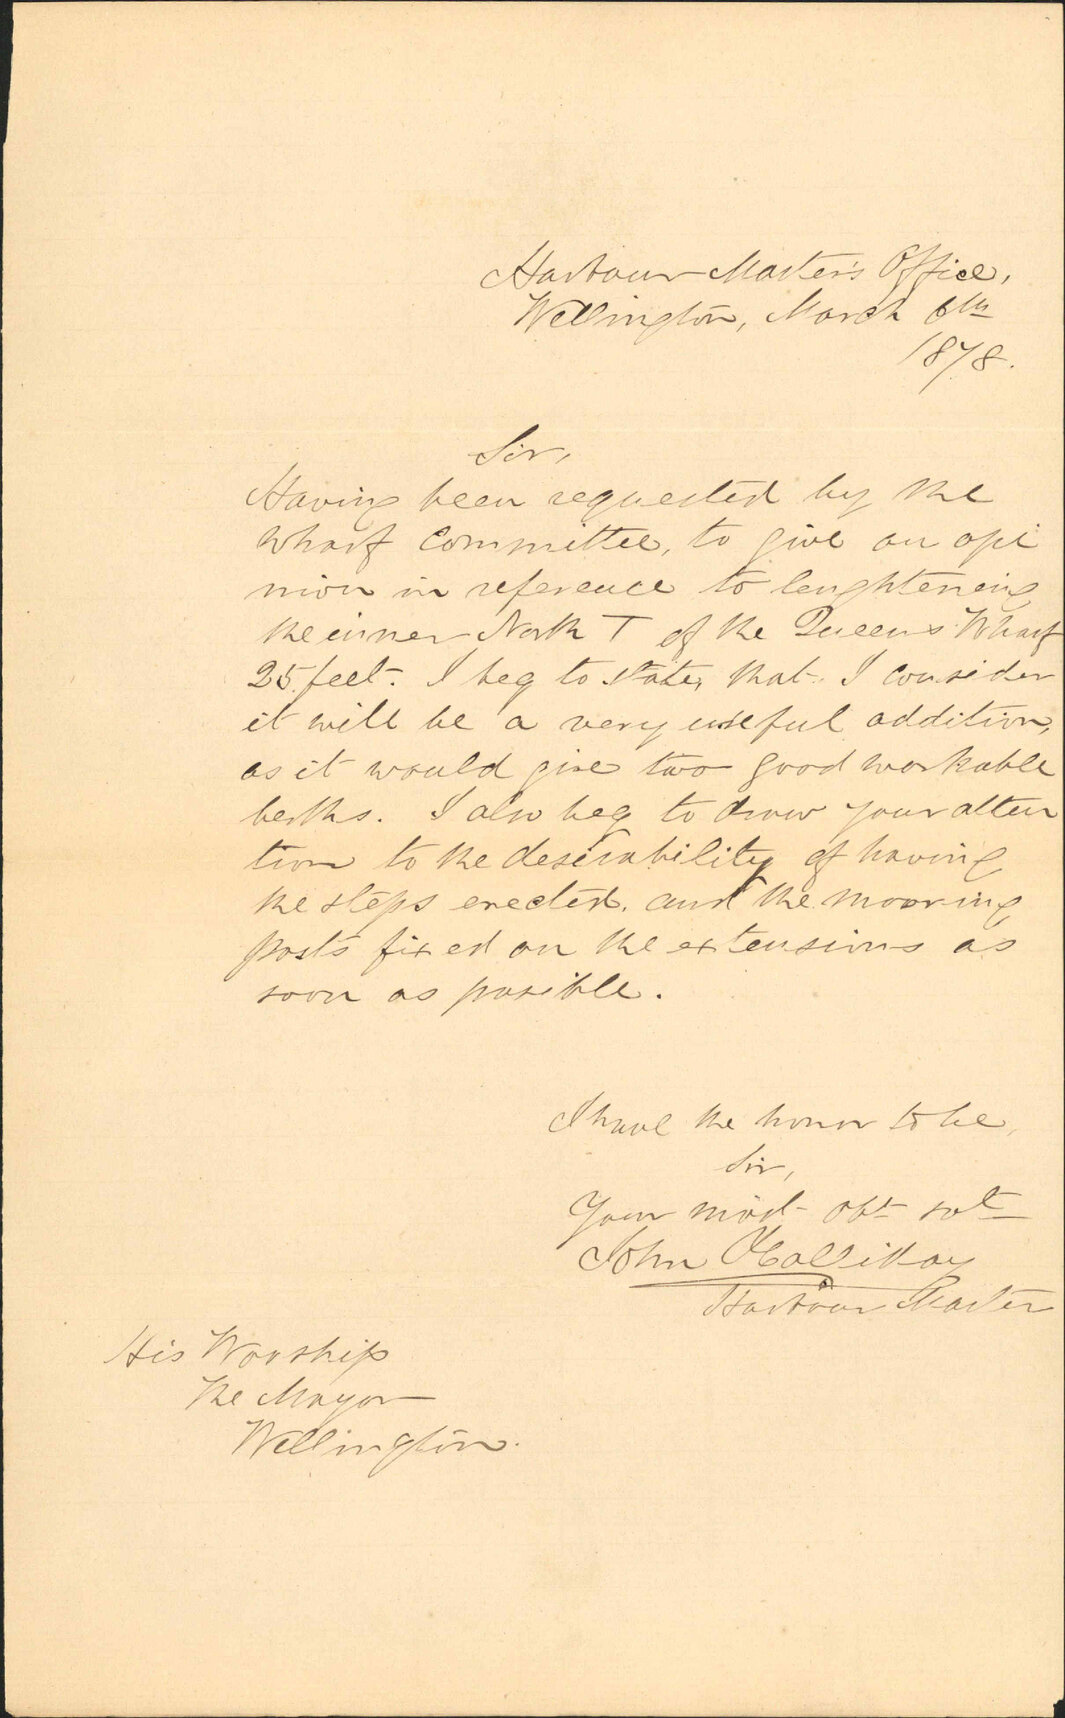 Harbour Master's Office,
Wellington, March 6th
1878.
Sir,
Having been requested by the
Wharf Committee, to give an opi
nion in reference to lenghtening
the inner North T of the Queens Wharf
25 feet. I beg to state, that I consider
it will be a very useful addition,
as it would give two good workable
berths. I also beg to draw your atten
tion to the desirability of having
the steps erected. and the mooring
posts fixed on the extensions as
soon as possible.
I have the honor to be,
Sir,
Your most obt svt
John Holliday
Harbour Master
His Worship
The Mayor
Wellington.